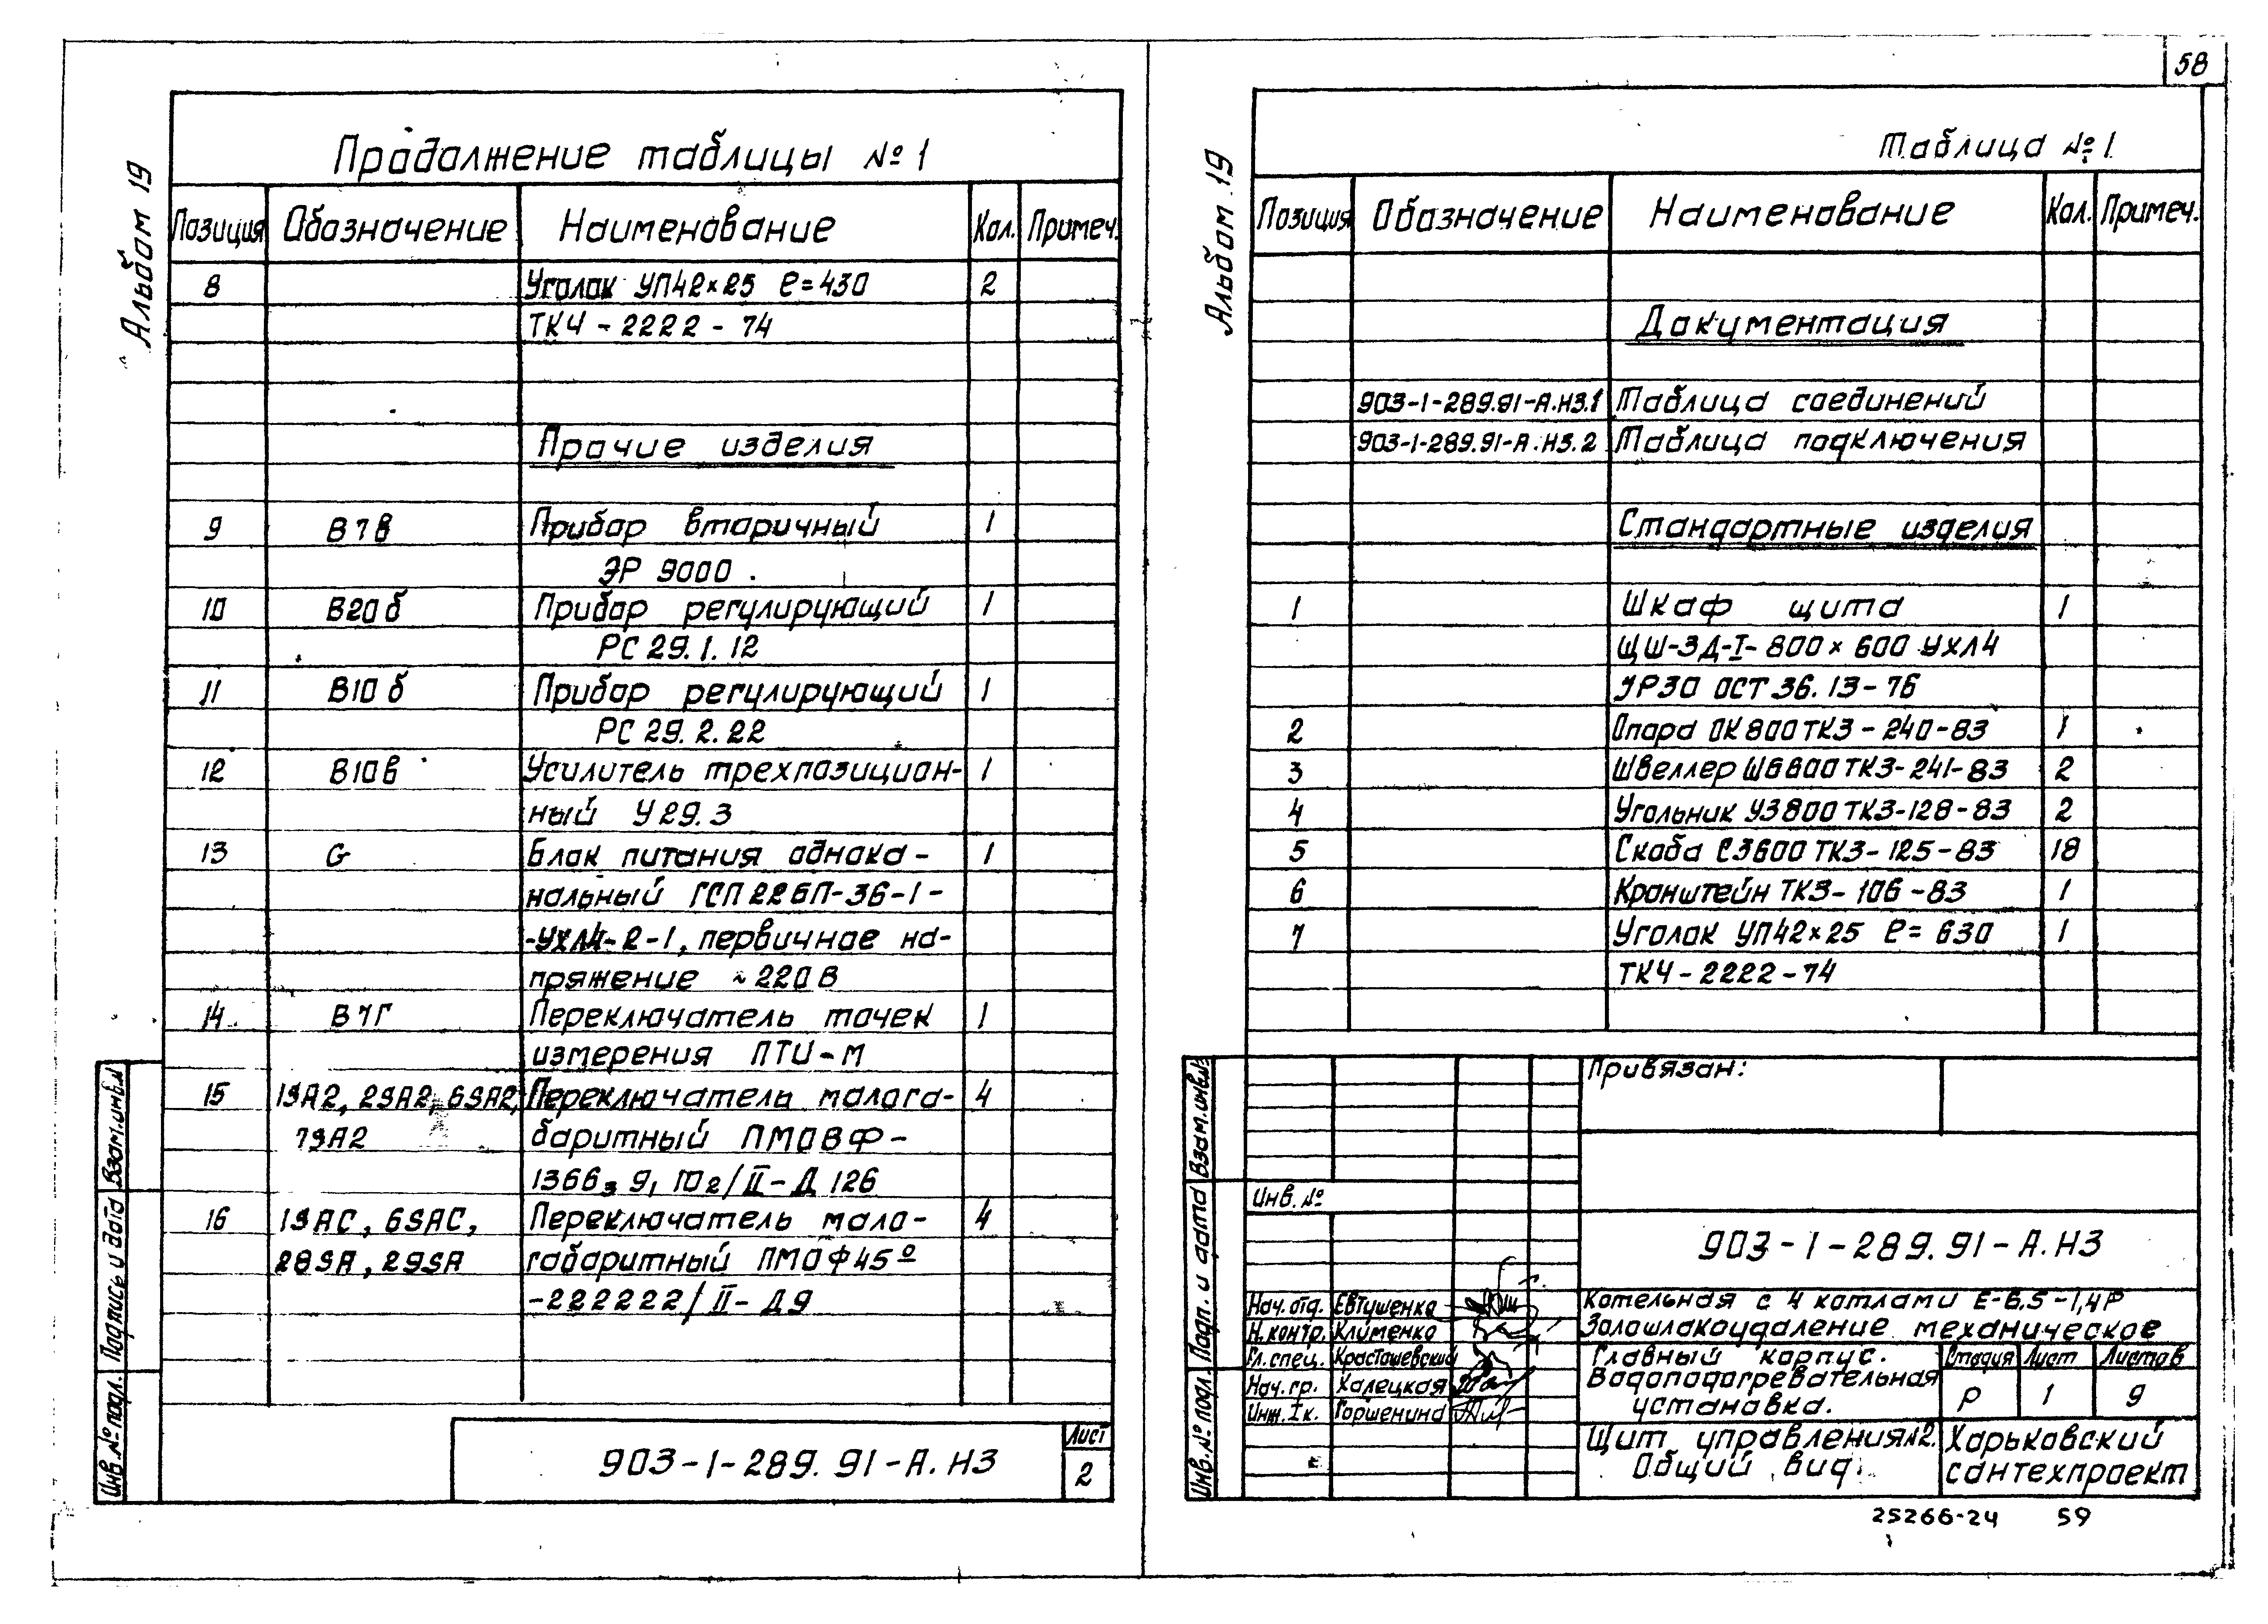 58
Альбом 19
Продолжение таблицы №1
Позиция Обозначение Наименование Кол. Примеч.
8 Уголок УП42×25 ℓ=430 2
ТК4-2222-74
Прочие изделия
9 В7в Прибор вторичный 1
ЭР 9000.
10 В20б Прибор регулирующий 1
РС 29.1.12
11 В10б Прибор регулирующий 1
РС 29.2.22
12 В10в Усилитель трехпозицион- 1
ный У29.3
13 G Блок питания однока- 1
нальный ГСП 22БП-36-1-
-УХЛ4-2-1, первичное на-
пряжение ~220В
14 В7г Переключатель точек 1
измерения ПТИ-М
15 1SA2, 2SA2, 6SA2, Переключатель малога- 4
7SA2 баритный ПМОВФ-
1366з 9, 10г/II-Д 126
16 1SAC, 6SAC, Переключатель мало- 4
28SA, 29SA габаритный ПМОФ45°
-222222/II-Д9
Инв.№подл. Подпись и дата Взам.инв.№
903-1-289.91-А.НЗ
Лист
2
Альбом 19
Таблица №1
Позиция Обозначение Наименование Кол. Примеч.
Документация
903-1-289.91-А.НЗ.1 Таблица соединений
903-1-289.91-А.НЗ.2 Таблица подключения
Стандартные изделия
1 Шкаф щита 1
ЩШ-ЗД-I-800×600 УХЛ4
УР30 ОСТ36.13-76
2 Опора ОК800ТК3-240-83 1
3 Швеллер Ш6600ТК3-241-83 2
4 Угольник У3800ТК3-128-83 2
5 Скоба С3600ТК3-125-83 18
6 Кронштейн ТК3-106-83 1
7 Уголок УП42×25 ℓ=630 1
ТК4-2222-74
Инв.№подл. Подп. и дата Взам.инв.№
Привязан:
Инв.№
903-1-289.91-А.НЗ
Нач.отд. Евтушенко
Н.контр. Клименко
Гл.спец. Красташевский
Нач.гр. Халецкая
Инж.Iк. Горшенина
Котельная с 4 котлами Е-6,5-1,4Р
Золошлакоудаление механическое
Главный корпус.
Водоподогревательная
установка.
Стадия Лист Листов
Р 1 9
Щит управления №2.
Общий вид.
Харьковский
сантехпроект
25266-24 59